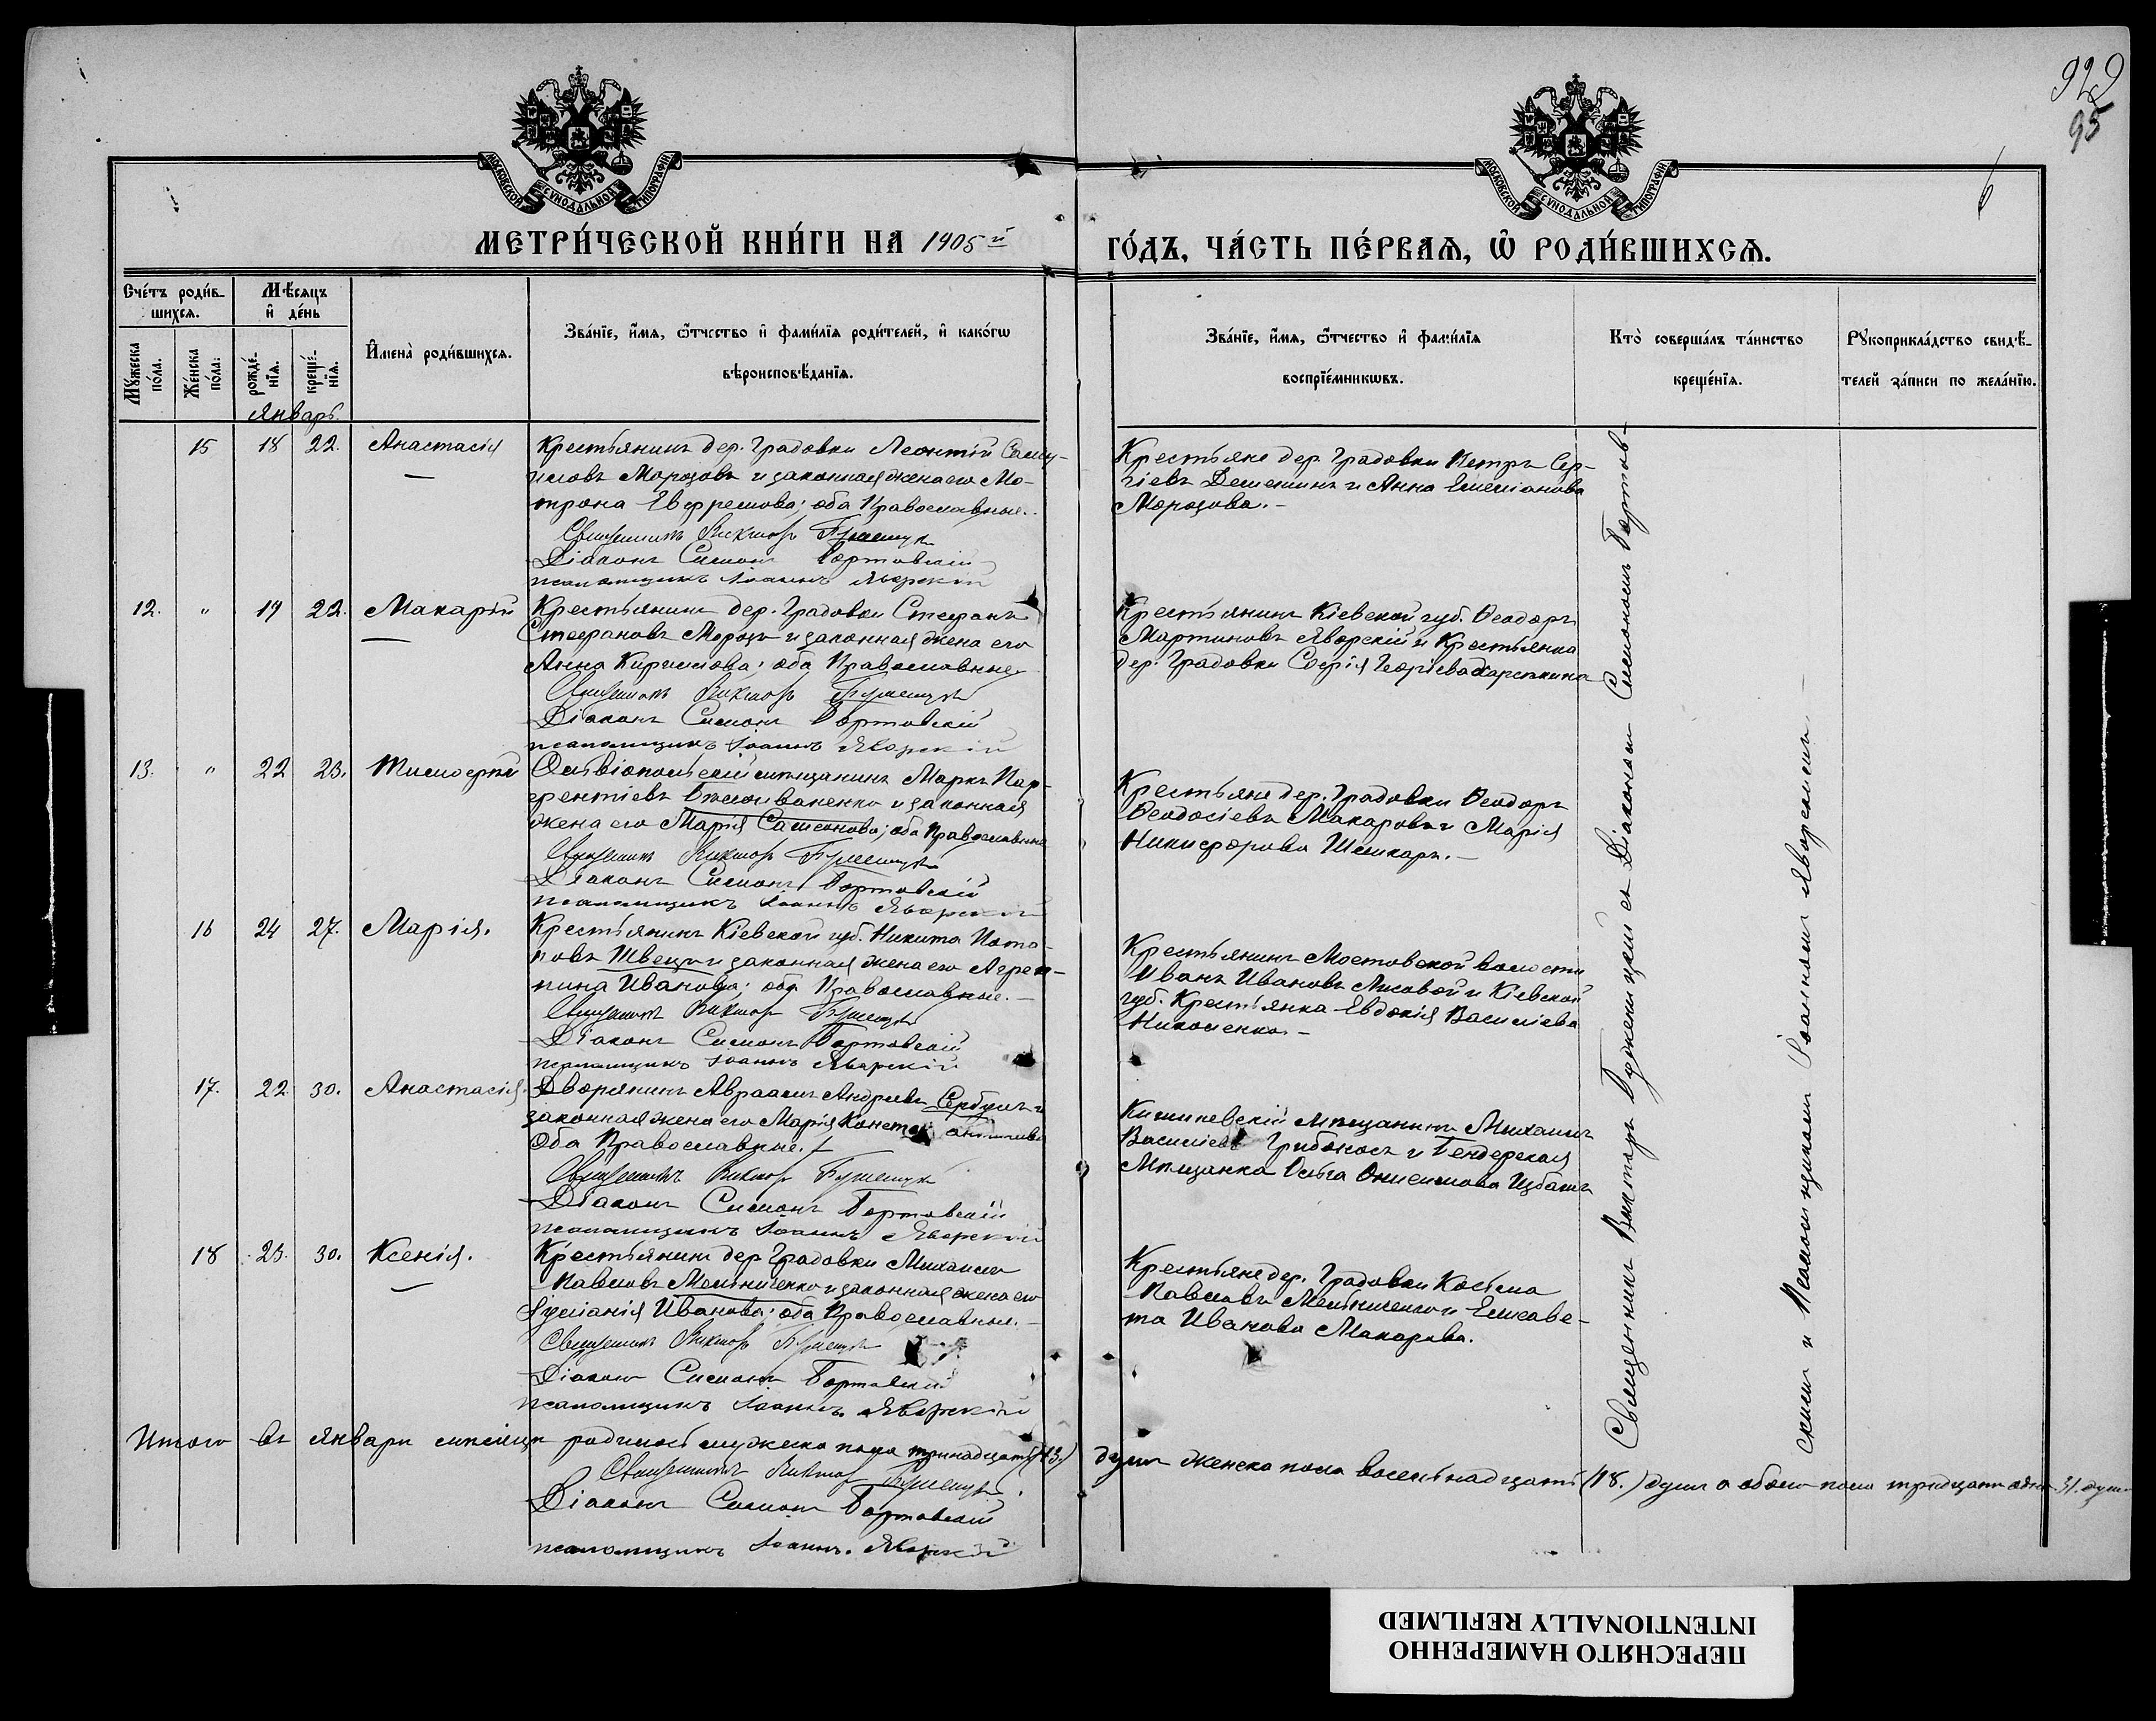 929
95
6
МОСКОВСКОЙ СѴНОДАЛЬНОЙ ТИПОГРАФІИ
МОСКОВСКОЙ СѴНОДАЛЬНОЙ ТИПОГРАФІИ
МЕТРИ́ЧЕСКОЙ КНИ́ГИ НА 1905й
ГО́ДЪ, ЧА́СТЬ ПЕ́РВАѦ, Ѿ РОДИ́ВШИХСѦ.
Счéтъ роди́в-
шихся.
Мѣсяцъ
и́ дéнь
Мꙋжеска
по́ла.
Жéнска
по́ла.
рождé-
нїя.
крещé-
нїя.
И҆мена̀ роди́вшихся.
Зва́нїе, и҆́мя, ѻ҆́тчество и҆ фами́лїя роди́телей, и҆ како́гѡ
вѣроисповѣданїя.
Зва́нїе, и҆́мя, ѻ҆́тчество и҆ фами́лїя
воспрїе́мникѡвъ.
Кто̀ соверша́лъ та́инство
креще́нїя.
Рꙋкоприкла́дство свидѣ-
телей за́писи по жела́нїю.
Январь.
15 18 22. Анастасія
Крестьянинъ дер. Градовки Леонтій Саму-
иловъ Морозовъ и законная жена его Мо-
трона Евфремова; оба Православные.
Священникъ Викторъ
Діаконъ Симонъ Бортовскій
псаломщикъ Іоаннъ Яворскій
Крестьяне дер. Градовки Петръ Сер-
гіевъ и Анна Емеліанова
Морозова.-
12. " 19 22. Макарій
Крестьянинъ дер. Градовки Стефанъ
Стефановъ Морозъ и законная жена его
Анна Кириллова; оба Православные
Священникъ Викторъ
Діаконъ Симонъ Бортовскій
псаломщикъ Іоаннъ Яворскій
Крестьянинъ Кіевской губ. Ѳеодоръ
Мартиновъ Яворскій и Крестьянка
дер. Градовки Софія Георгіева
13. " 22 23. Тимофей
Овидіопольскій мѣщанинъ Маркъ Пар-
фентіевъ и законная
жена его Марія; оба Православные
Священникъ Викторъ
Діаконъ Симонъ Бортовскій
псаломщикъ Іоаннъ Яворскій
Крестьяне дер. Градовки Ѳеодоръ
Ѳеодосіевъ Макаровъ и Марія
Никифорова Шликарь.-
16 24 27. Марія.
Крестьянинъ Кіевской губ. Никита Пота-
повъ Швецъ и законная жена его Агреп-
пина Иванова; оба Православные.-
Священникъ Викторъ
Діаконъ Симонъ Бортовскій
псаломщикъ Іоаннъ Яворскій
Крестьянинъ Мостовской волости
Иванъ Ивановъ Лисовой и Кіевской
губ. Крестьянка Евдокія Василіева
Николенко.-
17. 22 30. Анастасія.
Дворянинъ Авраамъ Андреевъ Сербулъ и
законная жена его Марія Константинова
Оба Православные.
Священникъ Викторъ
Діаконъ Симонъ Бортовскій
псаломщикъ Іоаннъ Яворскій
Кишиневскій мѣщанинъ Михаилъ
Василіевъ Грибоносъ и Бендерская
Мѣщанка Ольга Онисимова
18 23. 30. Ксенія.
Крестьянинъ дер Градовки Михаилъ
Павловъ Мельниченко и законная жена его
Іуліанія Иванова; оба Православные.-
Священникъ Викторъ
Діаконъ Симонъ Бортовскій
псаломщикъ Іоаннъ Яворскій
Крестьяне дер. Градовки Косьма
Павловъ Мельниченко и Елисаве-
та Иванова Макарова.
Священникъ Викторъ съ Діакономъ Симономъ Бортов-
скимъ и Псаломщикомъ Іоанномъ Яворскимъ
Итого въ январѣ мѣсяцѣ родилось мужеска пола тринадцать (13.) душъ женска пола восемнадцать (18.) душъ а обоего пола тридцать одна 31. душа
Священникъ Викторъ
Діаконъ Симонъ Бортовскій
псаломщикъ Іоаннъ Яворскій
ПЕРЕСНЯТО НАМЕРЕННО
INTENTIONALLY REFILMED